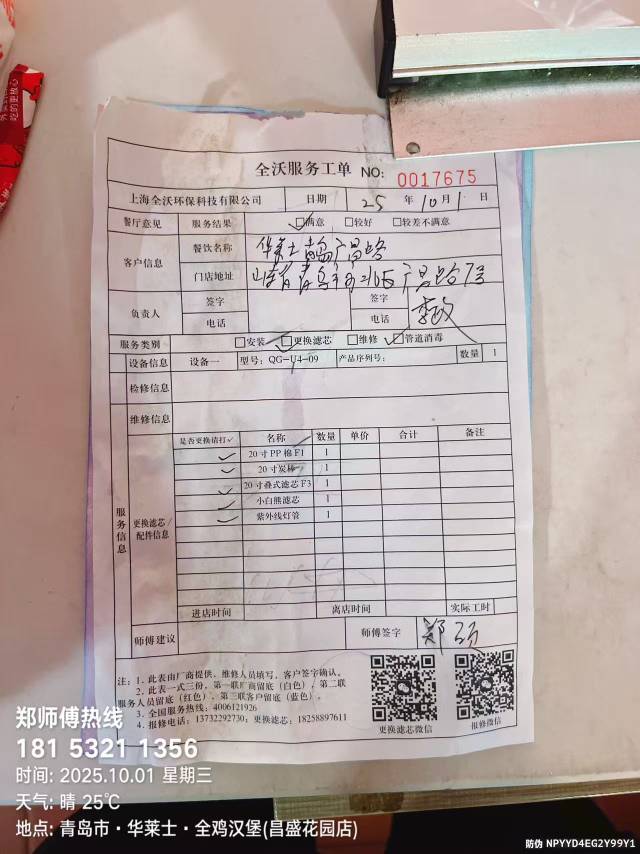 吃的更放心
全沃服务工单 NO: 0017675
上海全沃环保科技有限公司 日期 25 年 10 月 1 日
餐厅意见 服务结果 □满意 □较好 □较差不满意
客户信息 餐饮名称 华莱士青岛广昌路
门店地址 山东省青岛市 广昌路7号
负责人 签字 签字
电话 电话
服务类别 □安装 □更换滤芯 □维修 □管道消毒
设备信息 设备一 型号: QG-U4-09 产品序列号: 数量 1
检修信息
维修信息
服务信息
更换滤芯/配件信息
是否更换请打✓ 名称 数量 单价 合计 备注
✓ 20寸PP棉F1 1
✓ 20寸炭棒 1
✓ 20寸叠式滤芯F3 1
✓ 小白熊滤芯 1
✓ 紫外线灯管 1
进店时间 离店时间 实际工时
师傅建议 师傅签字 郑硕
注: 1. 此表由厂商提供、维修人员填写，客户签字确认。
2. 此表一式三份，第一联厂商留底（白色），第二联
服务人员留底（红色），第三联客户留底（蓝色）。
3. 全国服务热线: 4006121926
4. 报修电话: 13732292730; 更换滤芯: 18258897611
更换滤芯微信 报修微信
郑师傅热线
181 5321 1356
时间: 2025.10.01 星期三
天气: 晴 25℃
地点: 青岛市·华莱士·全鸡汉堡(昌盛花园店)
防伪 NPYYD4EG2Y99Y1